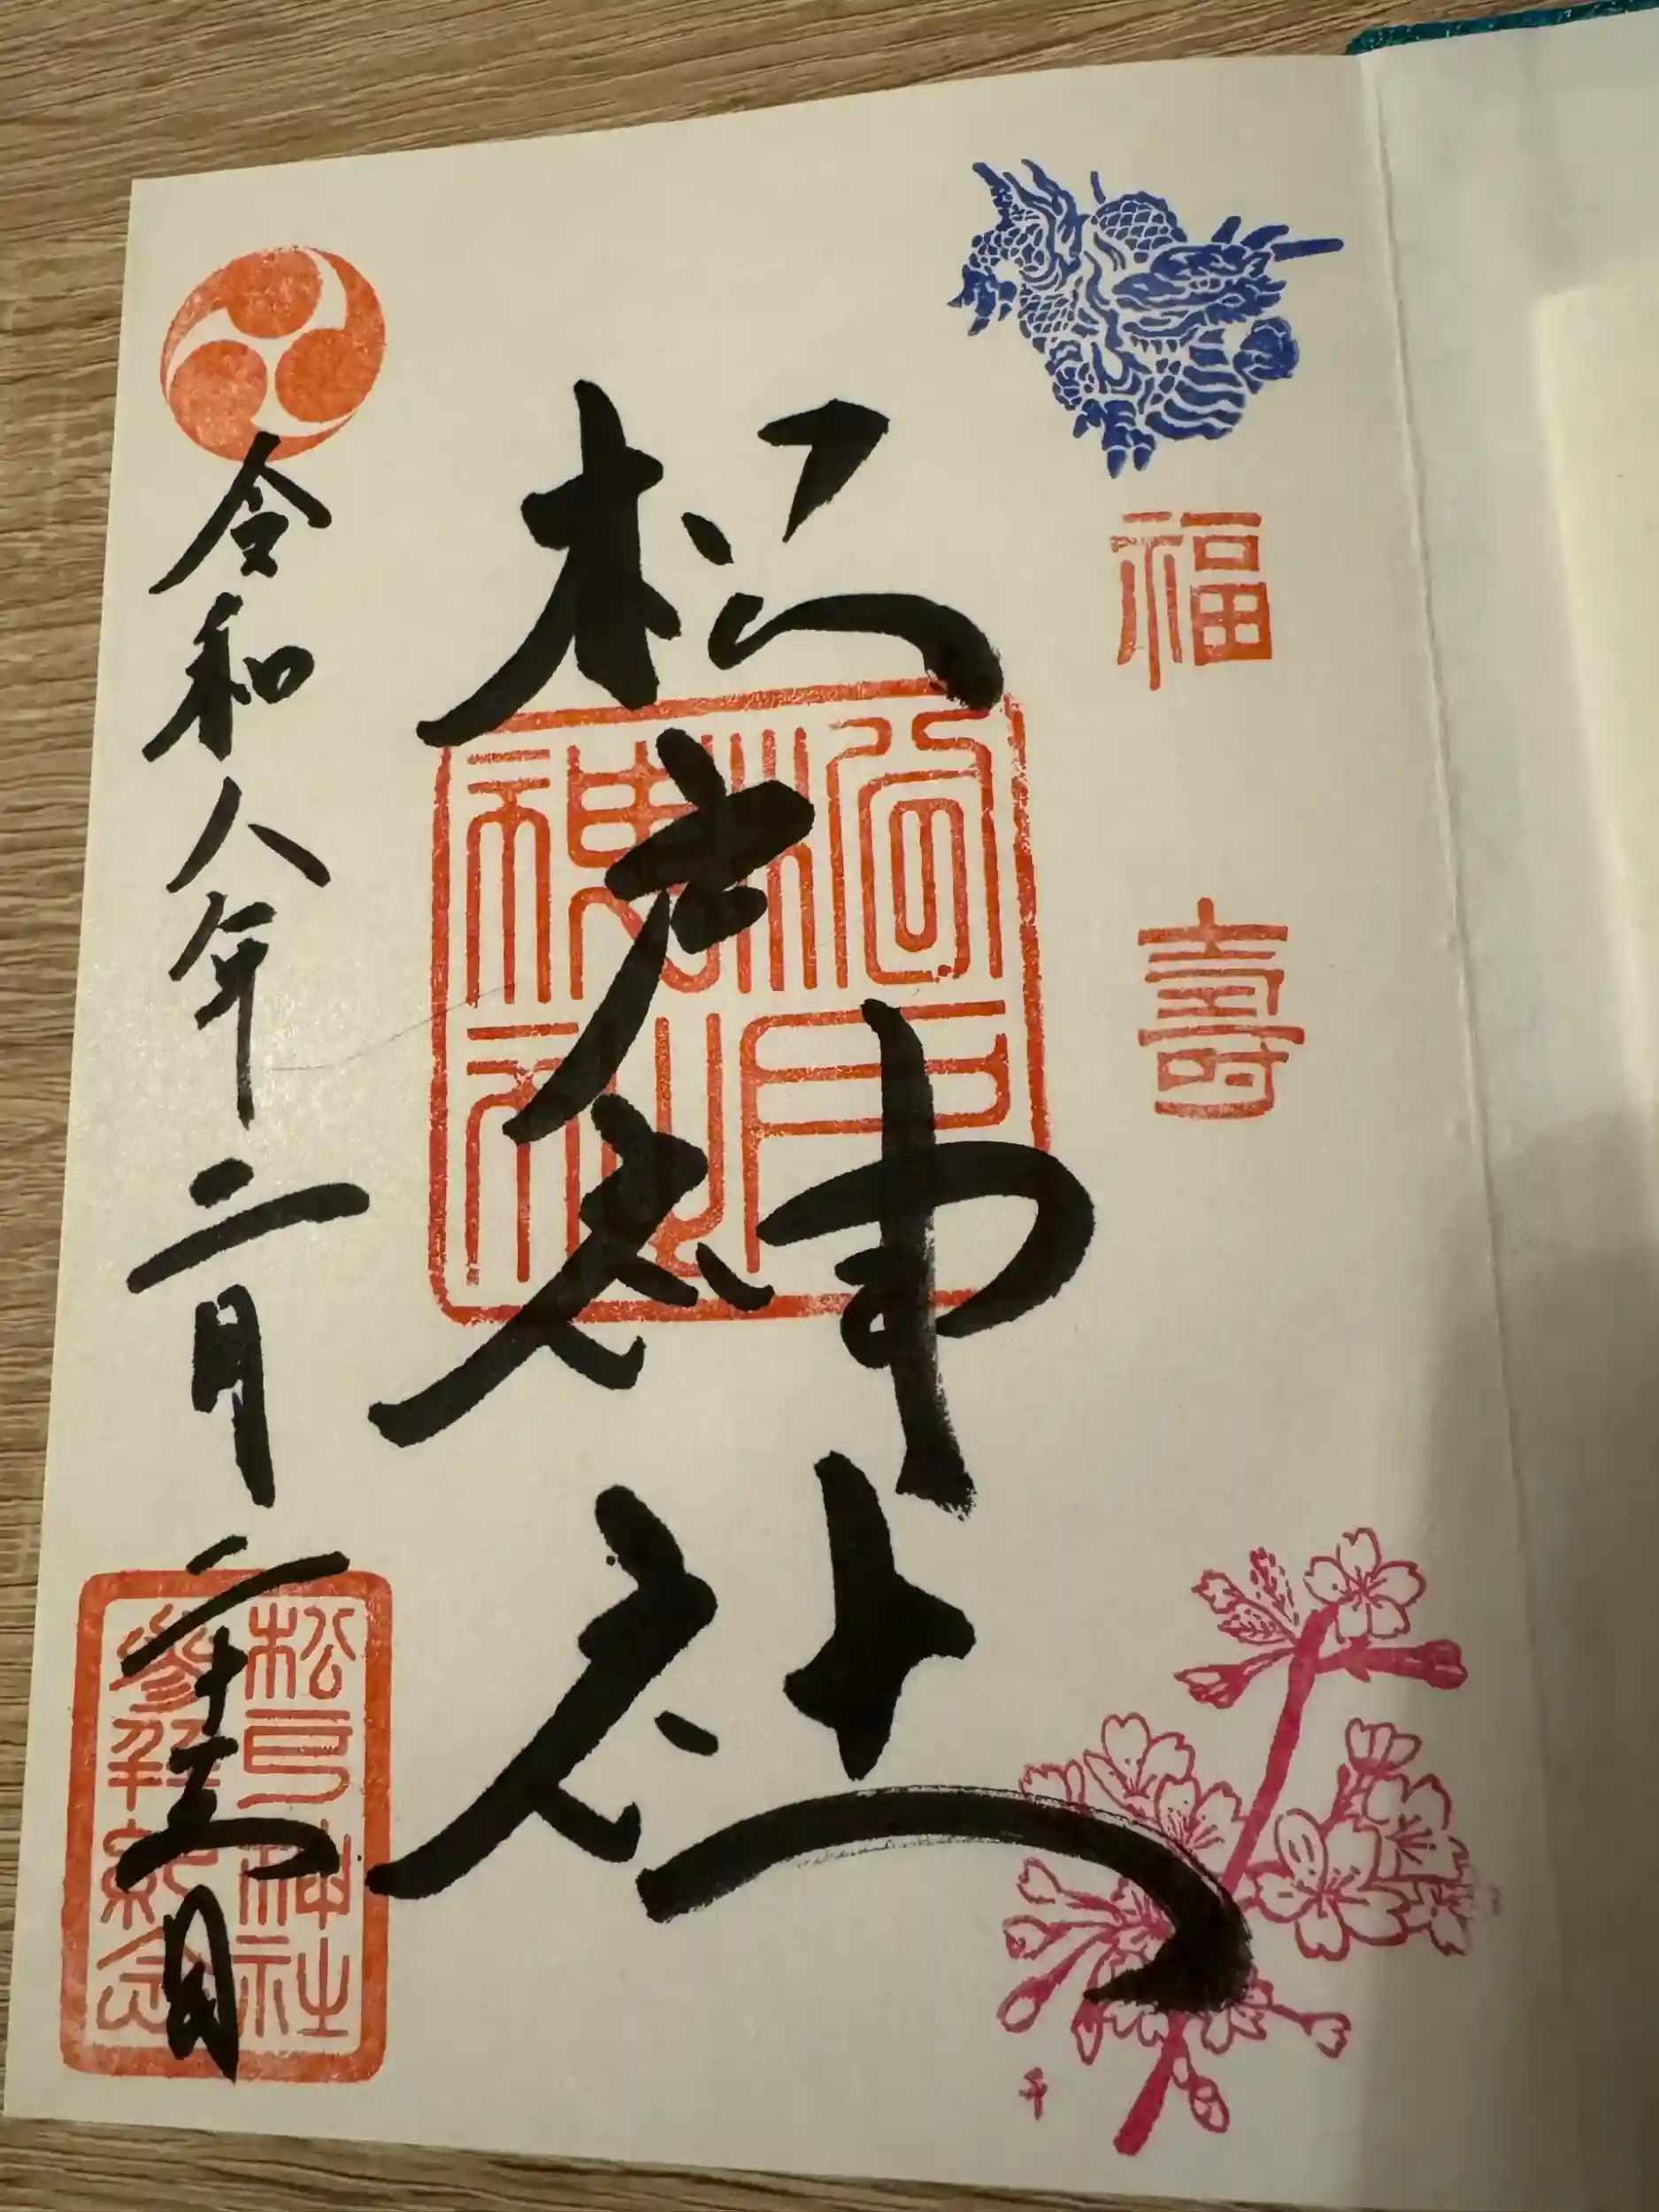 福
壽
松戸神社
松戸神社
令和八年二月二十五日
松戸神社
參拜紀念